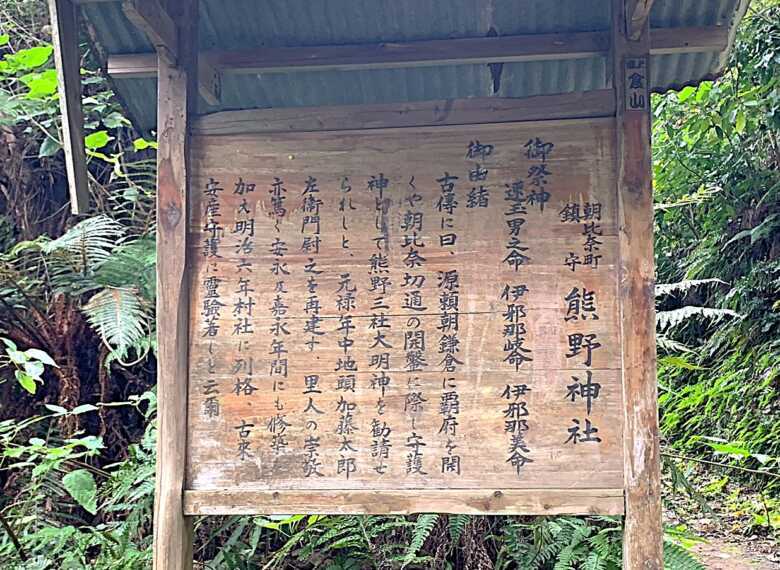 朝比奈町
鎮守
熊野神社
御祭神
速玉男之命 伊邪那岐命 伊邪那美命
御由緒
古傳に曰、源頼朝鎌倉に覇府を開
くや朝比奈切通の開鑿に際し守護
神として熊野三社大明神を勧請せ
られしと、元禄年中地頭加藤太郎
左衛門尉之を再建す、里人の崇敬
亦篤く安永及嘉永年間にも修築
加え明治六年村社に列格 古来
安産守護に霊験著しと云爾
倉山